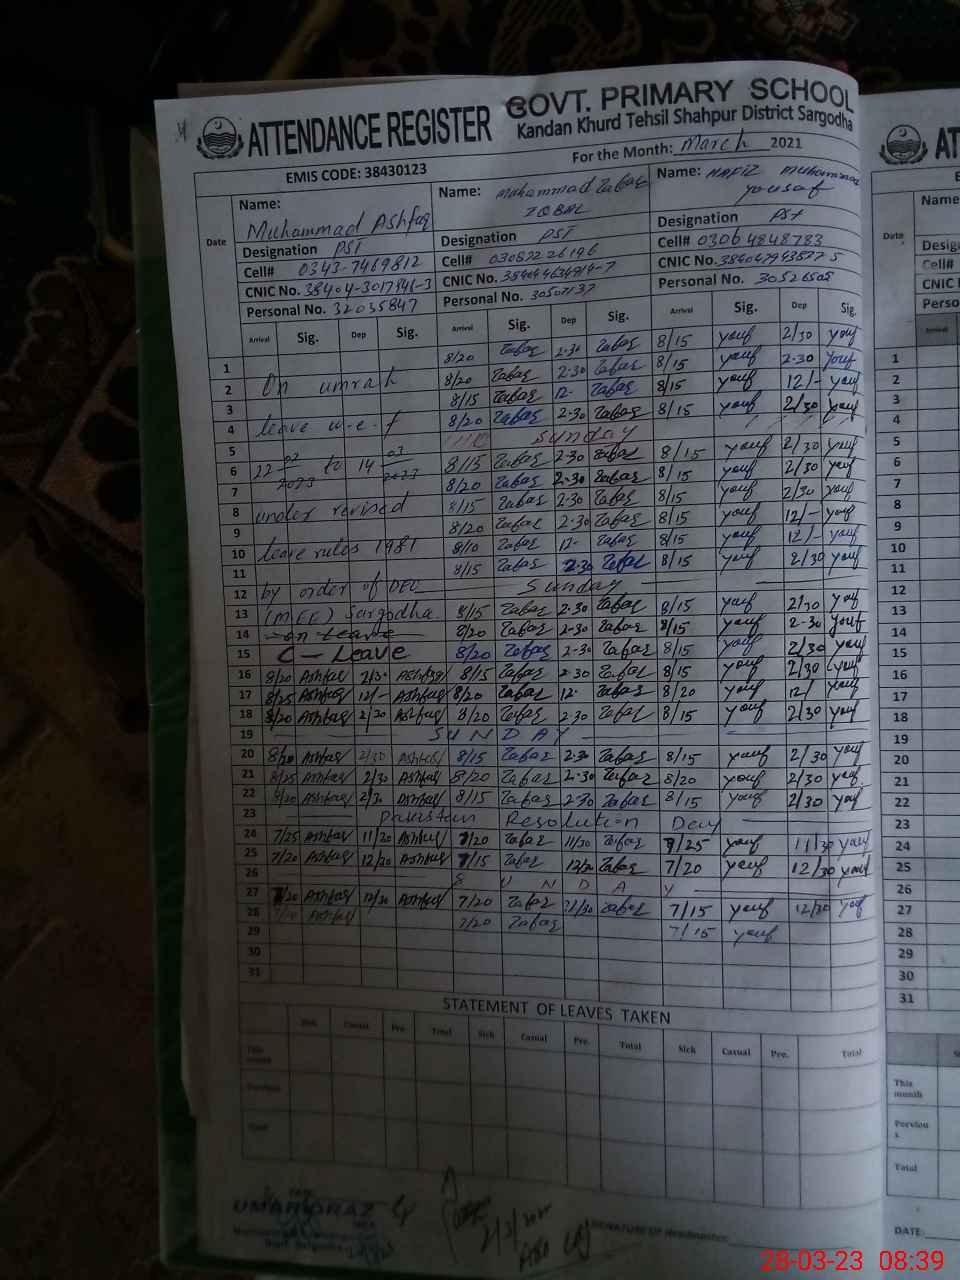 ATTENDANCE REGISTER GOVT. PRIMARY SCHOOL
Kandan Khurd Tehsil Shahpur District Sargodha
EMIS CODE: 38430123 For the Month: March 2021
Date Name: Muhammad Ashfaq Name: Muhammad Zafar IQBAL Name: HAFIZ Muhammad yousaf
Designation PST Designation PST Designation PST
Cell# 0343-7469812 Cell# Cell# 03064848783
CNIC No. 38404-3017846-3 CNIC No. CNIC No.
Personal No. 32035847 Personal No. Personal No. 30526505
Arrival Sig. Dep Sig. Arrival Sig. Dep Sig. Arrival Sig. Dep Sig.
1 8/20 Zafar 2-30 Zafar 8/15 youf 2/30 youf
2 On umrah 8/20 Zafar 2-30 Zafar 8/15 youf 2-30 youf
3 8/15 Zafar 12- Zafar 8/15 youf 12/- youf
4 leave w.e.f 8/20 Zafar 2-30 Zafar 8/15 youf 2/30 youf
5 Sunday
6 22-02-2023 to 14-03-2023 8/15 Zafar 2-30 Zafar 8/15 youf 2/30 youf
7 8/20 Zafar 2-30 Zafar 8/15 youf 2/30 youf
8 under revised 8/15 Zafar 2-30 Zafar 8/15 youf 2/30 youf
9 8/20 Zafar 2-30 Zafar 8/15 youf 12/- youf
10 leave rules 1981 8/10 Zafar 12- Zafar 8/15 youf 12/- youf
11 8/15 Zafar 2-30 Zafar 8/15 youf 2/30 youf
12 by order of DEO Sunday
13 (M.EE) Sargodha 8/15 Zafar 2-30 Zafar 8/15 youf 2/30 youf
14 on Leave 8/20 Zafar 2-30 Zafar 8/15 youf 2-30 youf
15 C - Leave 8/20 Zafar 2-30 Zafar 8/15 youf 2/30 youf
16 8/20 Ashfaq 2/30 Ashfaq 8/15 Zafar 2-30 Zafar 8/15 youf 2/30 youf
17 8/25 Ashfaq 12/- Ashfaq 8/20 Zafar 12- Zafar 8/20 youf 12/ youf
18 8/20 Ashfaq 2/30 Ashfaq 8/20 Zafar 2-30 Zafar 8/15 youf 2/30 youf
19 SUNDAY
20 8/20 Ashfaq 2/30 Ashfaq 8/15 Zafar 2-30 Zafar 8/15 youf 2/30 youf
21 8/25 Ashfaq 2/30 Ashfaq 8/20 Zafar 2-30 Zafar 8/20 youf 2/30 youf
22 8/20 Ashfaq 2/30 Ashfaq 8/15 Zafar 2-30 Zafar 8/15 youf 2/30 youf
23 Pakistan Resolution Day
24 7/25 Ashfaq 11/30 Ashfaq 7/20 Zafar 11/30 Zafar 7/25 youf 11/30 youf
25 7/20 Ashfaq 12/30 Ashfaq 7/15 Zafar 12/30 Zafar 7/20 youf 12/30 youf
26 SUNDAY
27 7/20 Ashfaq 12/30 Ashfaq 7/20 Zafar Zafar 7/15 youf 12/30 youf
28 Ashfaq 7/20 Zafar 7/15 youf
29
30
31
STATEMENT OF LEAVES TAKEN
Sick Casual Pre. Total Sick Casual Pre. Total Sick Casual Pre. Total
This month
Total
UMAR DRAZ
SIGNATURE OF HEADMASTER
AT
Name
Date
Designa
Cell#
CNIC
Perso
Arrival
1
2
3
4
5
6
7
8
9
10
11
12
13
14
15
16
17
18
19
20
21
22
23
24
25
26
27
28
29
30
31
This month
Perviou s
Total
DATE:
28-03-23 08:39